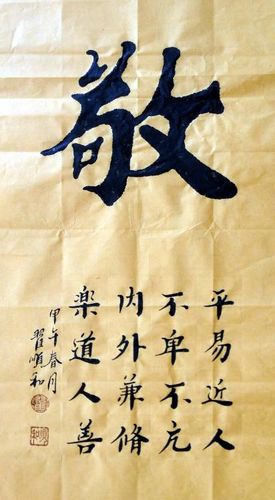 敬
平易近人
不卑不亢
内外兼脩
楽道人善
甲午春月
翟順和